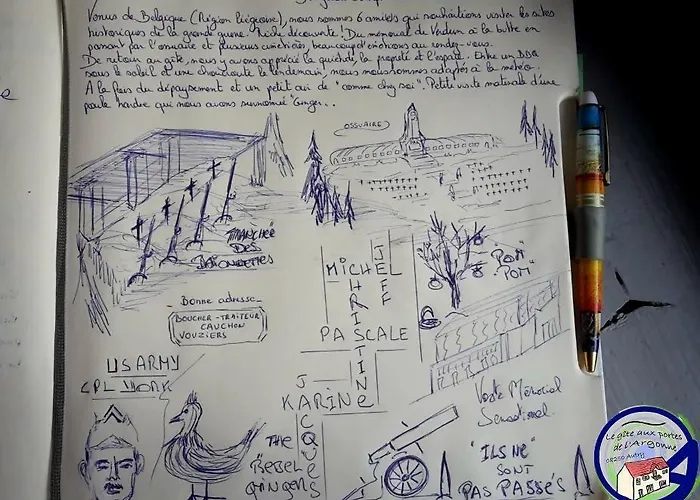 Venus de Belgique (Région liégeoise), nous sommes 6 ami(e)s qui souhaitions visiter les sites
historiques de la grande guerre. Riche découverte ! Du mémorial de Verdun à la butte en
passant par l'ossuaire et plusieurs cimetières, beaucoup d'émotions au rendez-vous.
De retour au gîte, nous y avons apprécié la quiétude, la propreté et l'espace. Entre un BBQ
sous le soleil et une choucroute le lendemain, nous nous sommes adaptés à la météo.
A la fois du dépaysement et un petit air de "comme chez soi". Petite visite matinale d'une
poule hardie que nous avons surnommé "Ginger"..
OSSUAIRE
TRANCHÉE
DES
BAÏONNETTES
Bonne adresse
BOUCHER-TRAITEUR
CAUCHON
VOUZIERS
MICHEL
JEFF
CHRISTINE
PASCALE
KARINE
JACQUES
"POM
POM"
US ARMY
CPL YORK
THE
REBEL
GINGERS
Visite Mémorial
Sensationnel
"ILS NE
SONT
PAS PASSÉS
Le gîte aux portes
de l'Argonne
08250 Autry